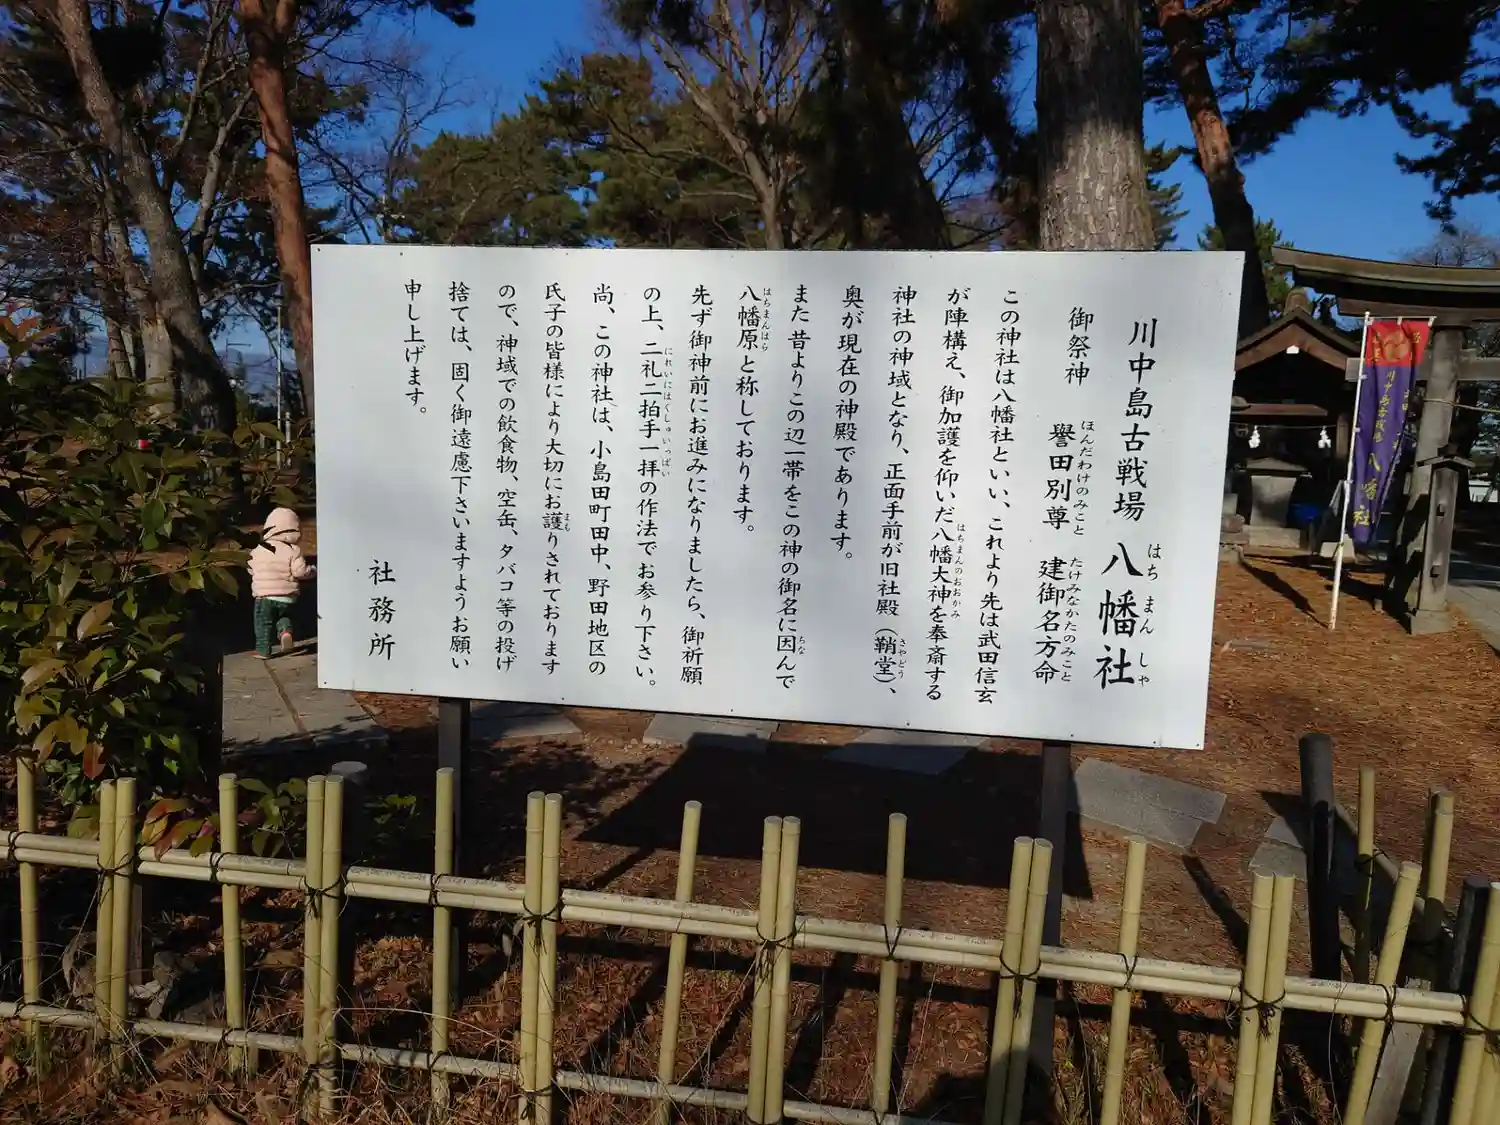 川中島古戦場 八幡社
はち まん しゃ
御祭神 誉田別尊 建御名方命
ほんだわけのみこと たけみなかたのみこと
この神社は八幡社といい、これより先は武田信玄
が陣構え、御加護を仰いだ八幡大神を奉斎する
はちまんのおおかみ
神社の神域となり、正面手前が旧社殿（鞘堂）、
さやどう
奥が現在の神殿であります。
また昔よりこの辺一帯をこの神の御名に因んで
ちな
八幡原と称しております。
はちまんはら
先ず御神前にお進みになりましたら、御祈願
の上、二礼二拍手一拝の作法でお参り下さい。
にれいにはくしゅいっぱい
尚、この神社は、小島田町田中、野田地区の
氏子の皆様により大切にお護りされております
まも
ので、神域での飲食物、空缶、タバコ等の投げ
捨ては、固く御遠慮下さいますようお願い
申し上げます。
社務所
川中島古戦場 八幡社